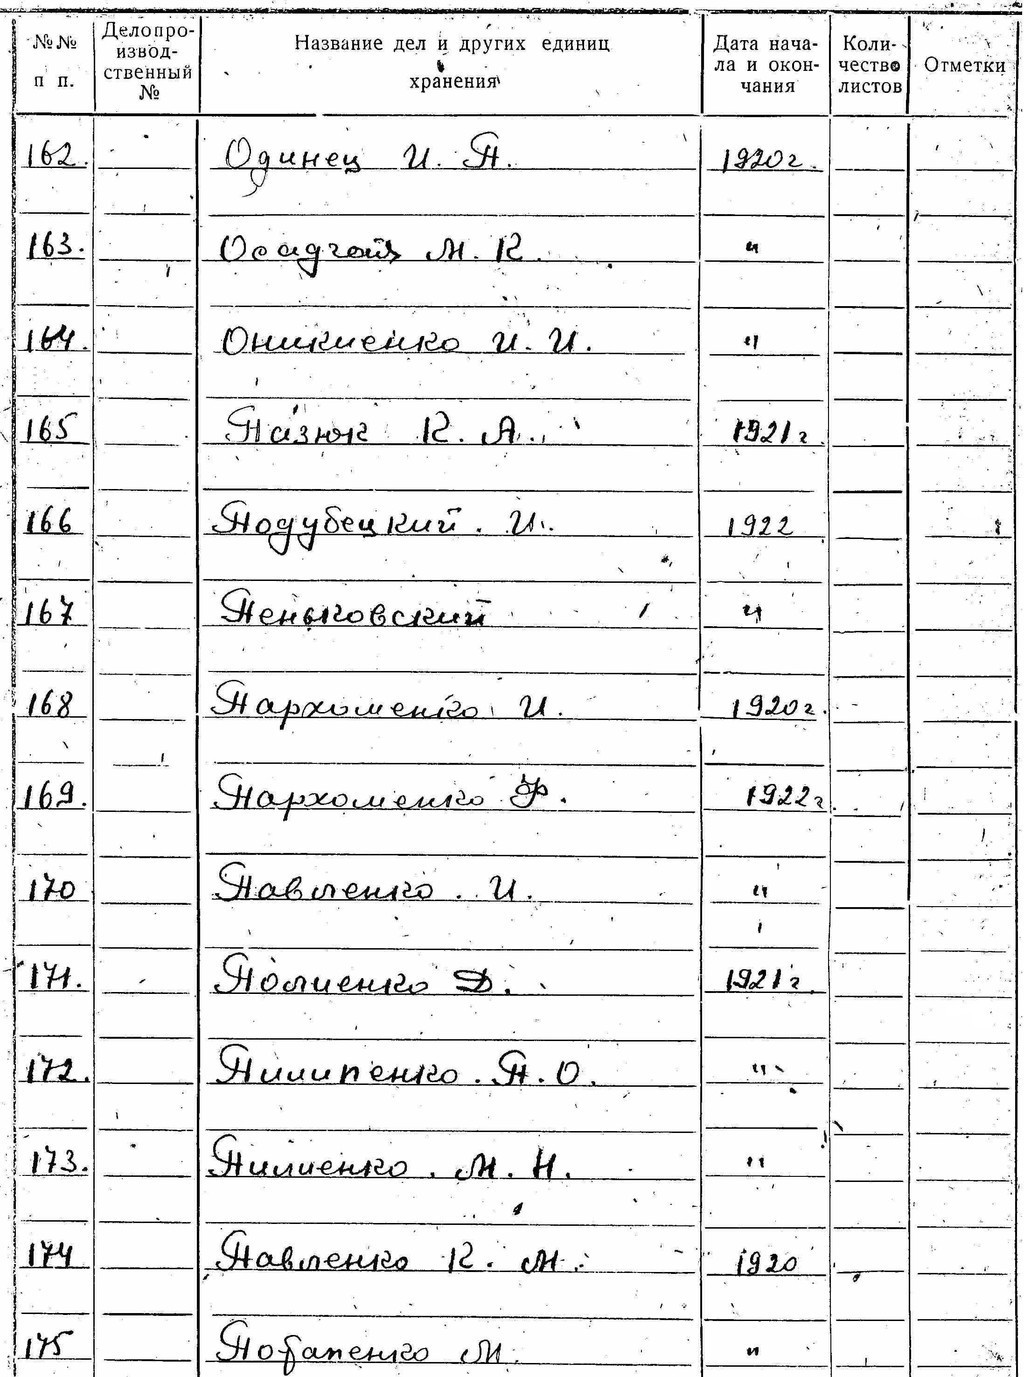 №№ п п.
Делопро-извод-ственный №
Название дел и других единиц хранения
Дата нача-ла и окон-чания
Коли-чество листов
Отметки
162. Одинец И. П. 1920г.
163. Осадчая М. К. "
164. Оникиенко И. И. "
165 Пазюк К. А. 1921г
166 Подубецкий. И. 1922
167 Пеньковский "
168 Пархоменко И. 1920г.
169. Пархоменко Ф. 1922г
170 Павленко. И. "
171. Полиенко Д. 1921г.
172. Пилипенко. П. О. "
173. Пилиенко. М. Н. "
174 Павленко К. М. 1920
175 Потапенко М. "